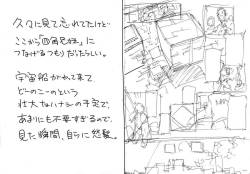 久々に見て忘れてたけど
ここから「四角兄妹」に
つなげるつもりだったらしい。
宇宙船がやって来て
どーのこーのという
壮大なハナシの予定で、
あまりにも不要すぎるので、
見た瞬間、自らに怒髪。